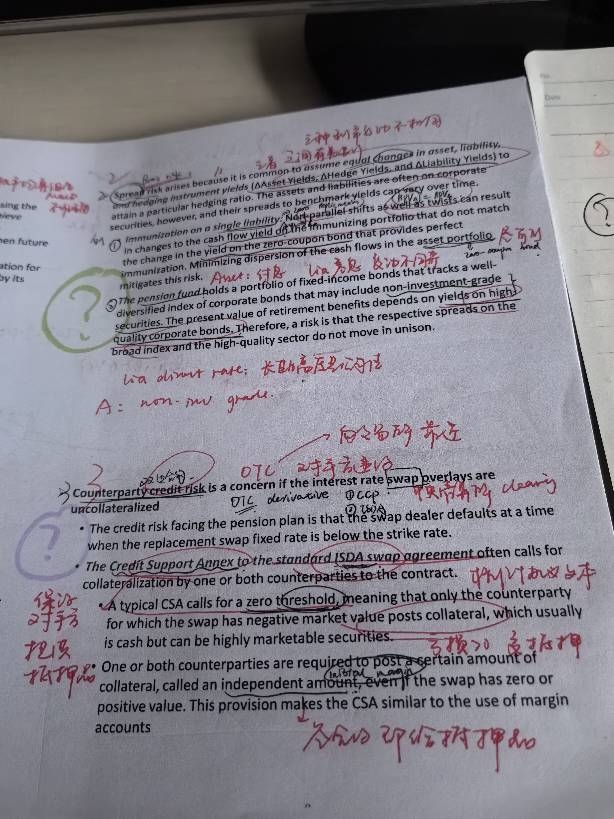 三种利率变动不相同
2. Spread risk arises because it is common to assume equal changes in asset, liability,
and hedging instrument yields (ΔAsset Yields, ΔHedge Yields, and ΔLiability Yields) to
attain a particular hedging ratio. The assets and liabilities are often on corporate
securities, however, and their spreads to benchmark yields can vary over time.
① Immunization on a single liability: Non-parallel shifts as well as twists can result
in changes to the cash flow yield on the immunizing portfolio that do not match
the change in the yield on the zero-coupon bond that provides perfect
immunization. Minimizing dispersion of the cash flows in the asset portfolio
zero-coupon bond
mitigates this risk.
② The pension fund holds a portfolio of fixed-income bonds that tracks a well-
diversified index of corporate bonds that may include non-investment-grade
securities. The present value of retirement benefits depends on yields on high-
quality corporate bonds. Therefore, a risk is that the respective spreads on the
broad index and the high-quality sector do not move in unison.
A: non-inv grade.
3
OTC
3 Counterparty credit risk is a concern if the interest rate swap overlays are
uncollateralized
OTC derivative ① CCP
clearing
② ISDA
• The credit risk facing the pension plan is that the swap dealer defaults at a time
when the replacement swap fixed rate is below the strike rate.
• The Credit Support Annex to the standard ISDA swap agreement often calls for
collateralization by one or both counterparties to the contract.
• A typical CSA calls for a zero threshold, meaning that only the counterparty
for which the swap has negative market value posts collateral, which usually
is cash but can be highly marketable securities.
保证
对手方
抵押品
• One or both counterparties are required to post a certain amount of
initial margin
collateral, called an independent amount, even if the swap has zero or
positive value. This provision makes the CSA similar to the use of margin
accounts
sing the
ieve
hen future
ation for
by its